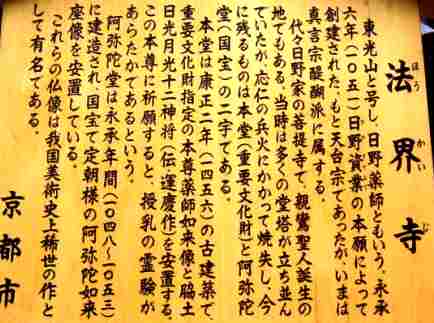 法界寺
ほうかいじ
東光山と号し、日野薬師ともいう。永承
六年(一〇五一)日野資業の本願によって
創建された。もと天台宗であったが、いまは
真言宗醍醐派に属する。
代々日野家の菩提寺で、親鸞聖人誕生の
地でもある。当時は多くの堂塔が立ち並ん
でいたが、応仁の兵火にかかって焼失し、今
に残るものは本堂(重要文化財)と阿弥陀
堂(国宝)の二宇である。
本堂は康正二年(一四五六)の古建築で、
重要文化財指定の本尊薬師如来像と脇士
日光月光十二神将(伝運慶作)を安置する。
この本尊に祈願すると、授乳の霊験が
あらたかであるという。
阿弥陀堂は永承年間(一〇四八~一〇五三)
に建造され、国宝で定朝様の阿弥陀如来
座像を安置している。
これらの仏像は我国美術史上稀世の作と
して有名である。
京都市